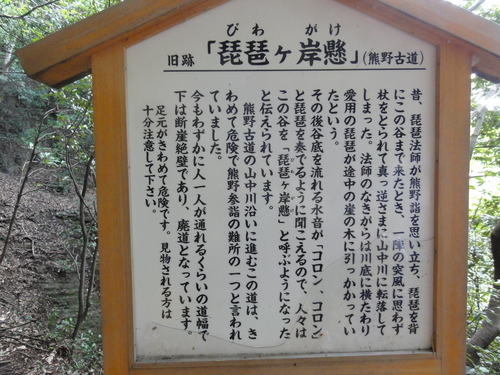 びわ がけ
旧跡「琵琶ヶ岸懸」(熊野古道)
昔、琵琶法師が熊野詣を思い立ち、琵琶を背
にこの谷まで来たとき、一陣の突風に思わず
杖をとられて真っ逆さまに山中川に転落して
しまった。法師のなきがらは川底に横たわり
愛用の琵琶が途中の崖の木に引っかかってい
たという。
その後谷底を流れる水音が、「コロン、コロン」
と琵琶を奏でるように聞こえるので、人々は
この谷を「琵琶ヶ岸懸」と呼ぶようになった
と伝えられています。
熊野古道の山中川沿いに進むこの道は、き
わめて危険で熊野参詣の難所の一つと言われ
ていました。
今もわずかに人一人が通れるくらいの道幅で
下は断崖絶壁であり、廃道となっています。
足元がきわめて危険です。見物される方は
十分注意して下さい。